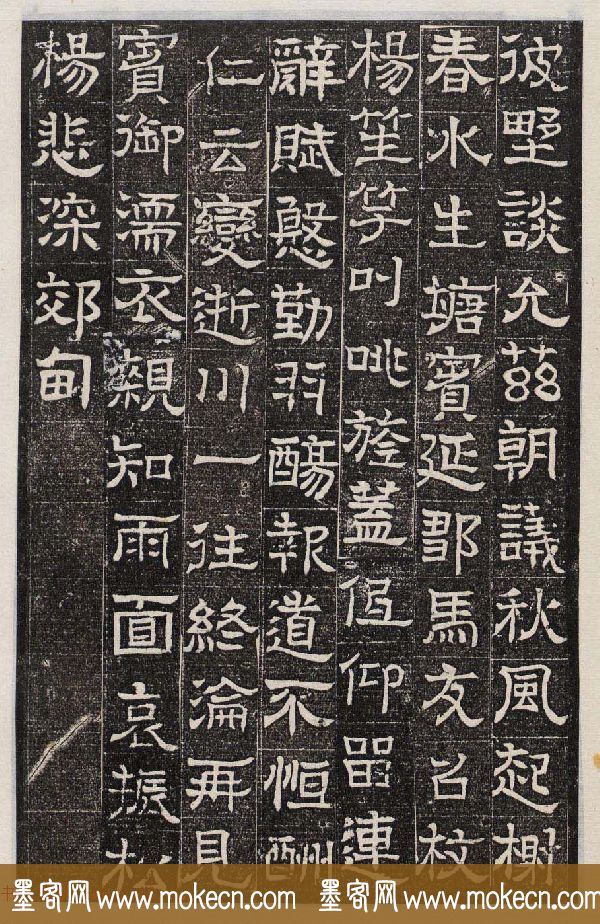 彼墅談允茲朝議秋風起榭
春水生塘賓延鄒馬友召枚
楊笙竽叫咷旌蓋低仰留連
辭賦慇勤羽觴報道不恒酬
仁云變逝川一往終淪再見
賓御濡衣親知雨面哀振松
楊悲深郊甸
墨客网 www.mokecn.com 墨客网 www.mokecn.com